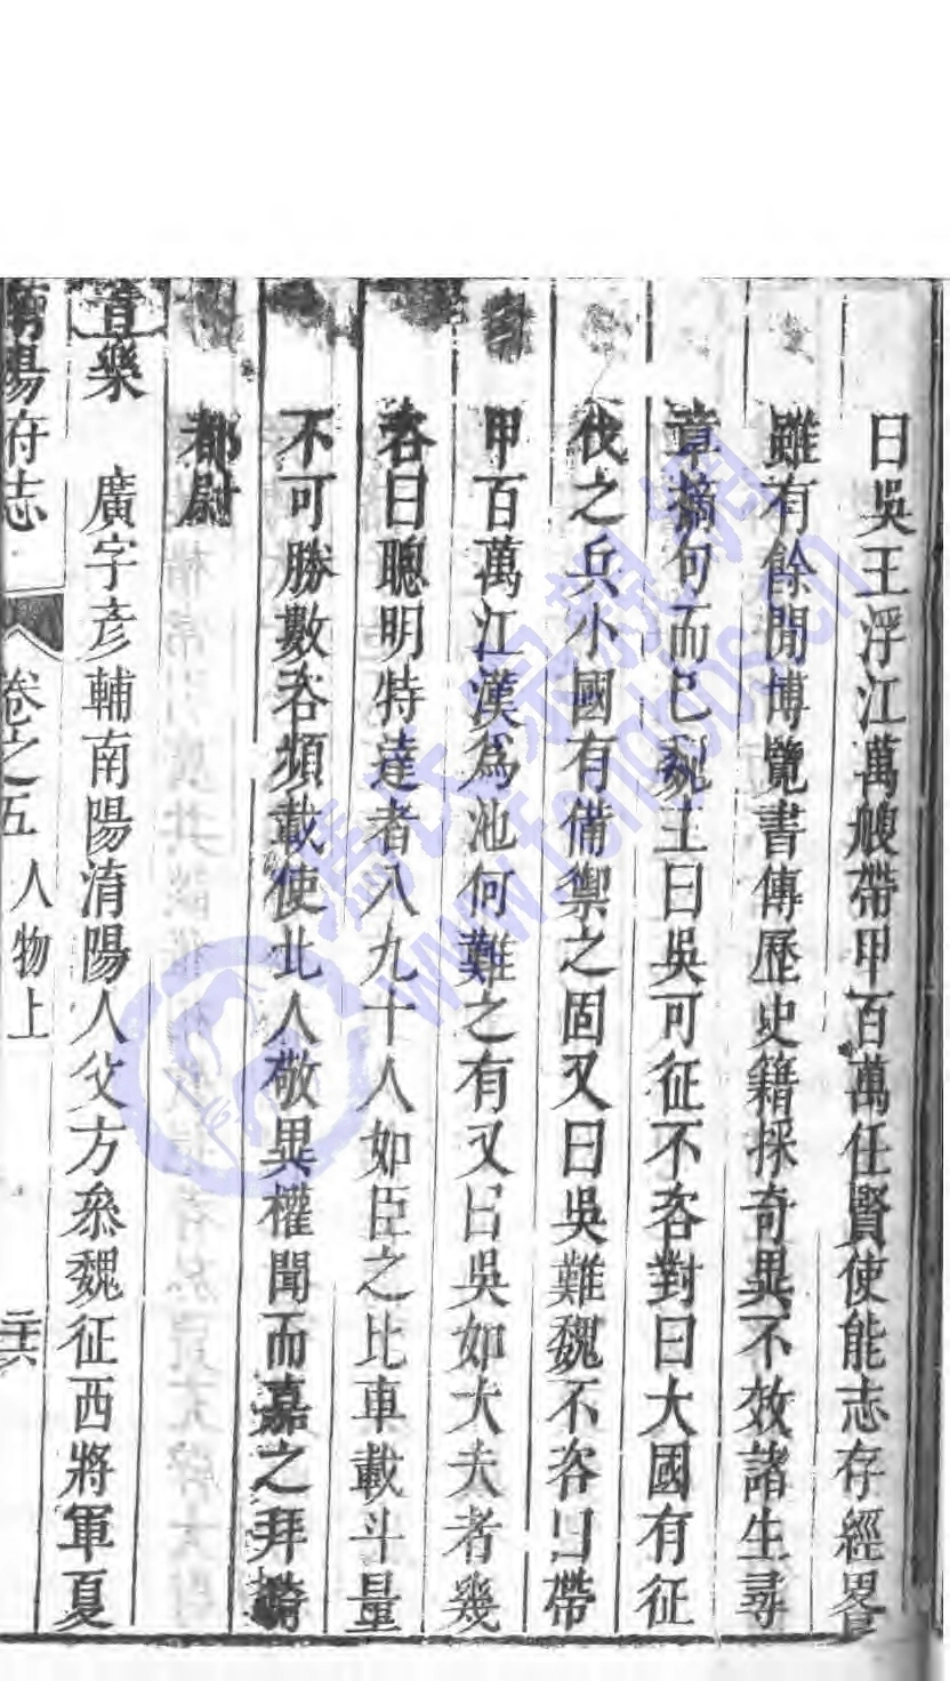 曰吳王浮江萬艘帶甲百萬任賢使能志存經畧
雖有餘閒博覽書傳歷史籍採奇異不效諸生尋
章摘句而已魏主曰吳可征不咨對曰大國有征
伐之兵小國有備禦之固又曰吳難魏不咨曰帶
甲百萬江漢為池何難之有又曰吳如大夫者幾
咨曰聰明特達者八九十人如臣之比車載斗量
不可勝數咨頻載使北人敬異權聞而嘉之拜騎
都尉
晉樂 廣字彥輔南陽淯陽人父方叅魏征西將軍夏
南陽府志 卷之五 人物上 二十六
www.fangbs.cn